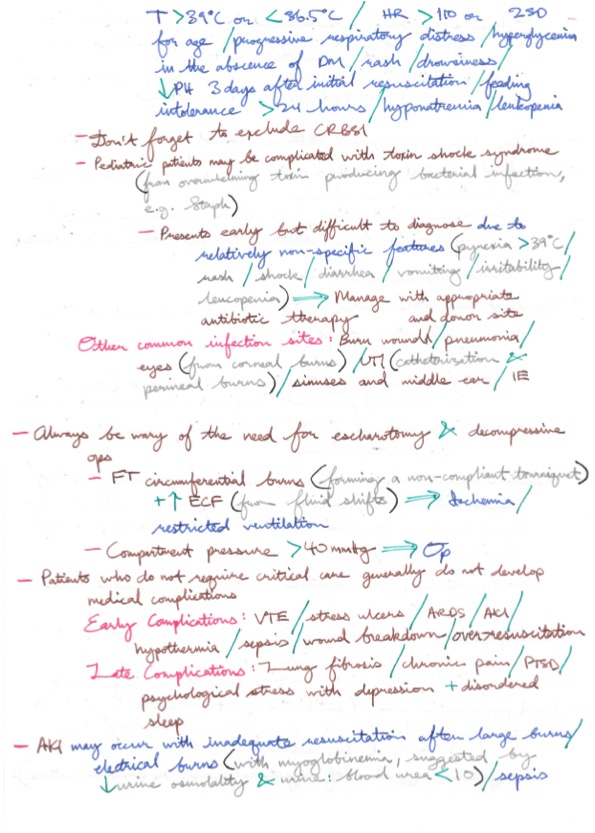 T >39°C or <36.5°C / HR >110 or 2SD
for age / progressive respiratory distress / hyperglycemia
in the abscence of DM / rash / drowsiness /
↓PH 3 days after initial resuscitation / feeding
intolerance >24 hours / hyponatremia / leukopenia
- Don't forget to exclude CRBSI
- Pediatric patients may be complicated with toxin shock syndrome
(from overwhelming toxin producing bacterial infection,
e.g. Staph)
- Presents early but difficult to diagnose due to
relatively non-specific features (pyrexia >39°C /
rash / shock / diarrhea / vomiting / irritability /
leucopenia) ⟹ Manage with appropriate
antibiotic therapy and donor site
Other common infection sites: Burn wound / pneumonia /
eyes (from corneal burns) / UTI (catheterization &
perineal burns) / sinuses and middle ear / IE
- Always be wary of the need for escharotomy & decompressive
ops
- FT circumferential burns (forming a non-compliant tourniquet)
+ ↑ ECF (from fluid shifts) ⟹ Ischemia /
restricted ventilation
- Compartment pressure >40 mmHg ⟹ Op
- Patients who do not require critical care generally do not develop
medical complications
Early Complications: VTE / stress ulcers / ARDS / AKI /
hypothermia / sepsis / wound breakdown / over-resuscitation
Late Complications: Lung fibrosis / chronic pain / PTSD /
psychological stress with depression + disordered
sleep
- AKI may occur with inadequate resuscitation after large burns /
electrical burns (with myoglobinemia, suggested by
↓ urine osmolality & urine: blood urea <10) / sepsis